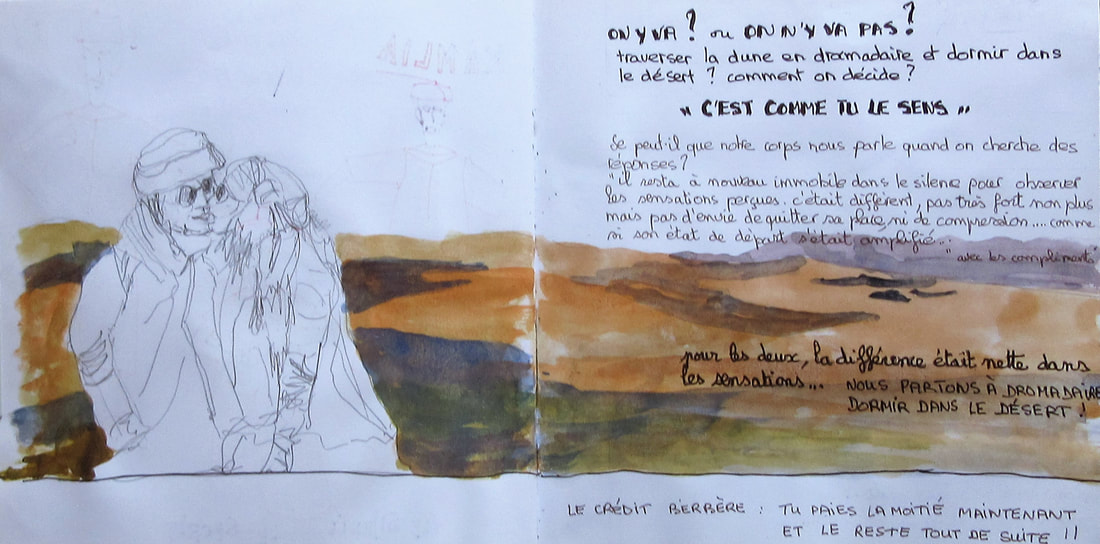 ON Y VA ? ou ON N'Y VA PAS ?
traverser la dune en dromadaire et dormir dans
le désert ? comment on décide ?
" C'EST COMME TU LE SENS "
Se peut-il que notre corps nous parle quand on cherche des
réponses ?
"il resta à nouveau immobile dans le silence pour observer
les sensations perçues. c'était différent, pas très fort non plus
mais pas d'envie de quitter sa place, ni de compression.... comme
si son état de départ s'était amplifié...
" avec les compléments
pour les deux, la différence était nette dans
les sensations... NOUS PARTONS À DROMADAIRE
DORMIR DANS LE DÉSERT !
LE CRÉDIT BERBÈRE : TU PAIES LA MOITIÉ MAINTENANT
ET LE RESTE TOUT DE SUITE !!